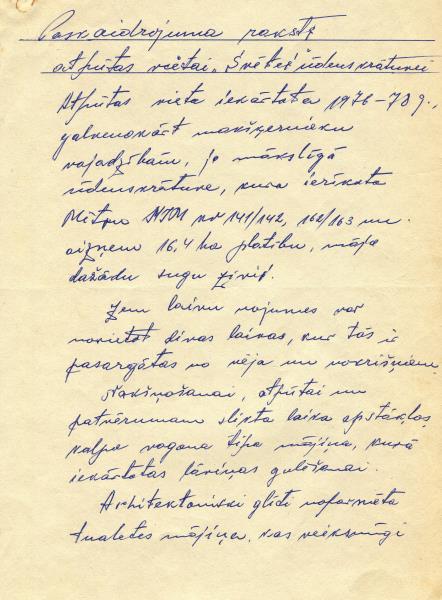 Paskaidrojuma raksts
atpūtas vietai „Svētes" ūdenskrātuvei
Atpūtas vieta iekārtota 1976-78 g.,
galvenokārt makšķernieku
vajadzībām, jo mākslīgā
ūdenskrātuve, kura ierīkota
Mitro NTM no 141/142, 162/163 un
aizņem 16,4 ha platību, māja
dažādu sugu zivis.
Zem laivu nojumes var
novietot divas laivas, kur tās ir
pasargātas no vēja un nokrišņiem.
Nakšņošanai, atpūtai un
patvērumam slikta laika apstākļos,
kalpo vagona tipa mājiņa, kurā
iekārtotas lāviņas gulēšanai.
Architektoniski glīti noformēta
tualetes mājiņa, kas veiksmīgi